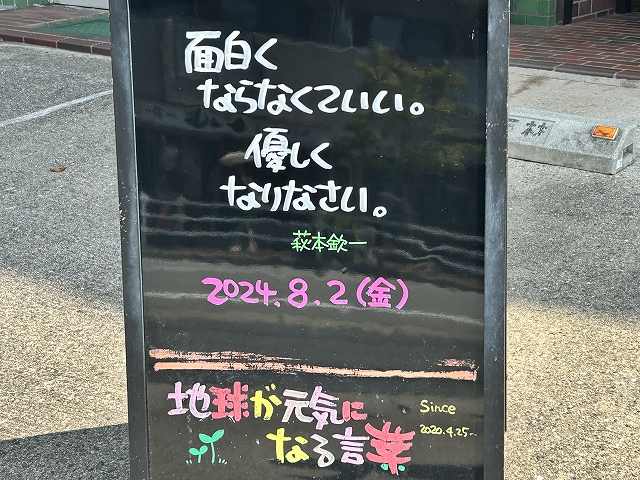 面白く
ならなくていい。
優しく
なりなさい。
萩本欽一
2024.8.2(金)
地球が元気に
なる言葉
Since
2020.4.25~
林